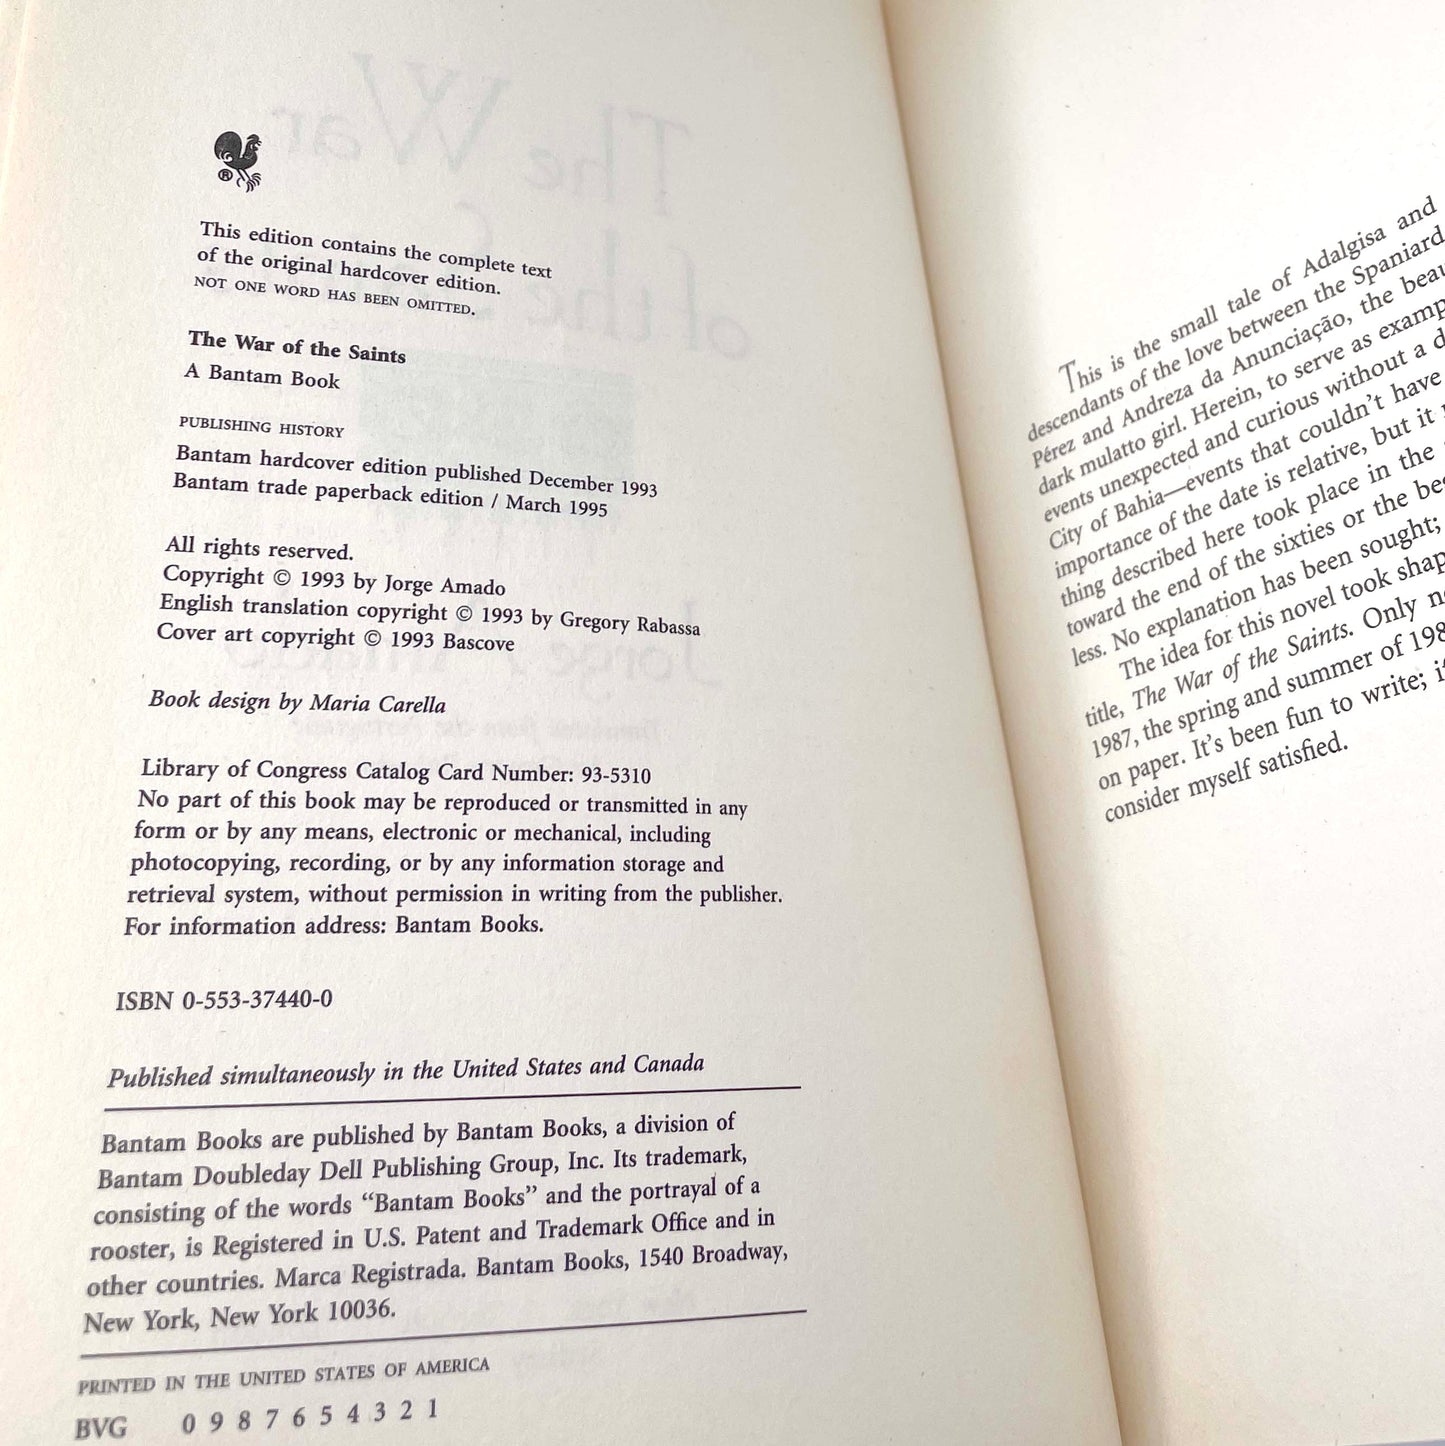 ®
This edition contains the complete text
of the original hardcover edition.
NOT ONE WORD HAS BEEN OMITTED.
The War of the Saints
A Bantam Book
PUBLISHING HISTORY
Bantam hardcover edition published December 1993
Bantam trade paperback edition / March 1995
All rights reserved.
Copyright © 1993 by Jorge Amado
English translation copyright © 1993 by Gregory Rabassa
Cover art copyright © 1993 Bascove
Book design by Maria Carella
Library of Congress Catalog Card Number: 93-5310
No part of this book may be reproduced or transmitted in any
form or by any means, electronic or mechanical, including
photocopying, recording, or by any information storage and
retrieval system, without permission in writing from the publisher.
For information address: Bantam Books.
ISBN 0-553-37440-0
Published simultaneously in the United States and Canada
Bantam Books are published by Bantam Books, a division of
Bantam Doubleday Dell Publishing Group, Inc. Its trademark,
consisting of the words “Bantam Books” and the portrayal of a
rooster, is Registered in U.S. Patent and Trademark Office and in
other countries. Marca Registrada. Bantam Books, 1540 Broadway,
New York, New York 10036.
PRINTED IN THE UNITED STATES OF AMERICA
BVG 0 9 8 7 6 5 4 3 2 1
This is the small tale of Adalgisa and
descendants of the love between the Spaniard
Pérez and Andreza da Anunciação, the
dark mulatto girl. Herein, to serve as
events unexpected and curious without a
City of Bahia—events that couldn't have
importance of the date is relative, but it
thing described here took place in the
toward the end of the sixties or the
less. No explanation has been sought;
The idea for this novel took
title, The War of the Saints. Only
1987, the spring and summer of
on paper. It's been fun to write;
consider myself satisfied.